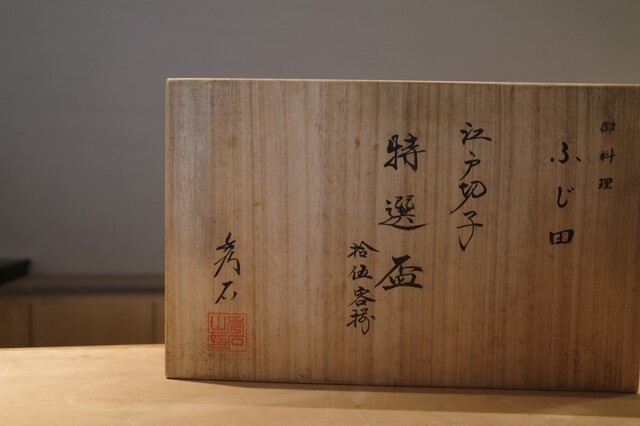 御料理
ふじ田
江戸切子
特選盃
拾伍客揃
秀石